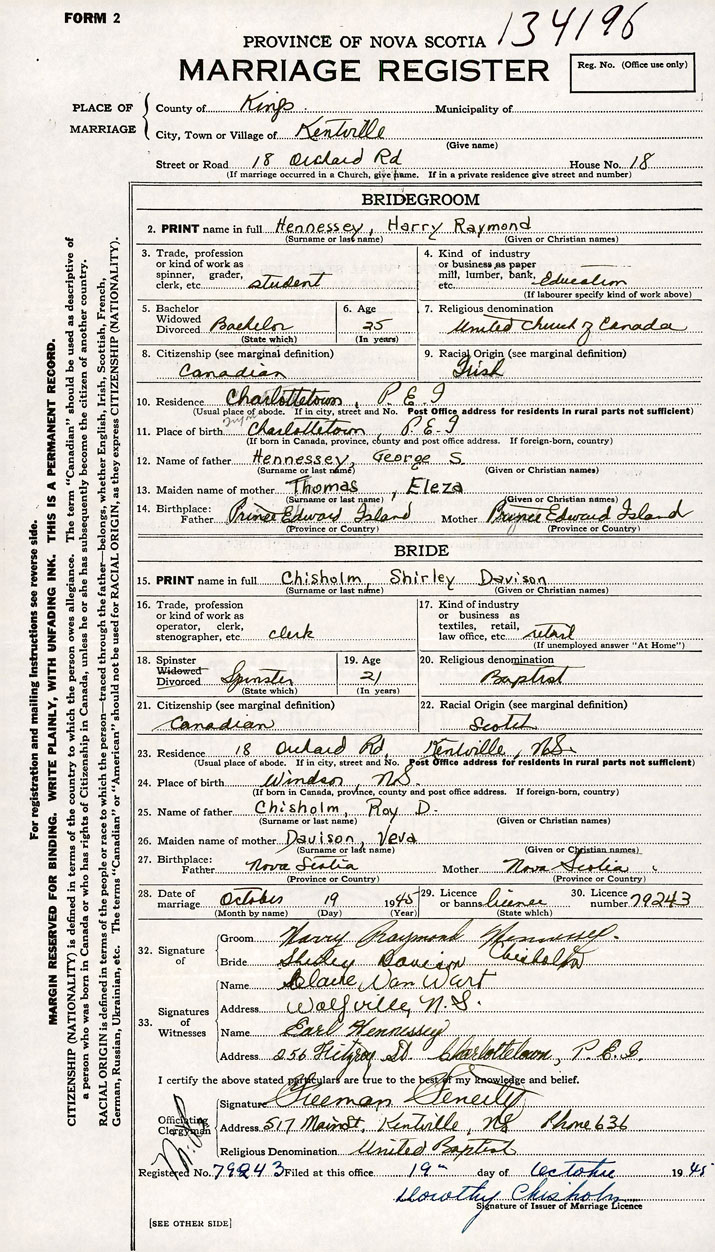 FORM 2
134196
PROVINCE OF NOVA SCOTIA
MARRIAGE REGISTER
Reg. No. (Office use only)
PLACE OF MARRIAGE
County of Kings Municipality of
City, Town or Village of Kentville
(Give name)
Street or Road 18 Orchard Rd House No. 18
(If marriage occurred in a Church, give name. If in a private residence give street and number)
BRIDEGROOM
2. PRINT name in full Hennessey, Harry Raymond
(Surname or last name) (Given or Christian names)
3. Trade, profession or kind of work as spinner, grader, clerk, etc. student
4. Kind of industry or business as paper mill, lumber, bank, etc. Education
(If labourer specify kind of work above)
5. Bachelor Widowed Divorced Bachelor
(State which)
6. Age 25
(In years)
7. Religious denomination United Church of Canada
8. Citizenship (see marginal definition) Canadian
9. Racial Origin (see marginal definition) Irish
10. Residence Charlottetown, P.E.I
(Usual place of abode. If in city, street and No. Post Office address for residents in rural parts not sufficient)
11. Place of birth Charlottetown, P.E.I
(If born in Canada, province, county and post office address. If foreign-born, country)
12. Name of father Hennessey, George S.
(Surname or last name) (Given or Christian names)
13. Maiden name of mother Thomas, Eleza
(Surname or last name) (Given or Christian names)
14. Birthplace: Father Prince Edward Island Mother Prince Edward Island
(Province or Country) (Province or Country)
BRIDE
15. PRINT name in full Chisholm, Shirley Davison
(Surname or last name) (Given or Christian names)
16. Trade, profession or kind of work as operator, clerk, stenographer, etc. clerk
17. Kind of industry or business as textiles, retail, law office, etc. retail
(If unemployed answer "At Home")
18. Spinster Widowed Divorced Spinster
(State which)
19. Age 21
(In years)
20. Religious denomination Baptist
21. Citizenship (see marginal definition) Canadian
22. Racial Origin (see marginal definition) Scotch
23. Residence 18 Orchard Rd, Kentville, N.S.
(Usual place of abode. If in city, street and No. Post Office address for residents in rural parts not sufficient)
24. Place of birth Windsor, N.S.
(If born in Canada, province, county and post office address. If foreign-born, country)
25. Name of father Chisholm, Roy D.
(Surname or last name) (Given or Christian names)
26. Maiden name of mother Davison, Veva
(Surname or last name) (Given or Christian names)
27. Birthplace: Father Nova Scotia Mother Nova Scotia
(Province or Country) (Province or Country)
28. Date of marriage October 19 1945
(Month by name) (Day) (Year)
29. Licence or banns license
(State which)
30. Licence number 79243
32. Signature of
Groom Harry Raymond Hennessey.
Bride Shirley Davison Chisholm
33. Signatures of Witnesses
Name Elaine Van Wart
Address Wolfville, N.S.
Name Earl Hennessey
Address 256 Fitzroy St. Charlottetown, P.E.I.
I certify the above stated particulars are true to the best of my knowledge and belief.
Officiating Clergyman
Signature Freeman
Address 517 Main St, Kentville, NS Phone 636
Religious Denomination United Baptist
Registered No. 79243 Filed at this office 19th day of October 1945
Dorothy Chisholm
Signature of Issuer of Marriage Licence
[SEE OTHER SIDE]
For registration and mailing instructions see reverse side.
MARGIN RESERVED FOR BINDING. WRITE PLAINLY, WITH UNFADING INK. THIS IS A PERMANENT RECORD.
CITIZENSHIP (NATIONALITY) is defined in terms of the country to which the person owes allegiance. The term "Canadian" should be used as descriptive of
a person who was born in Canada or who has rights of Citizenship in Canada, unless he or she has subsequently become the citizen of another country.
RACIAL ORIGIN is defined in terms of the people or race to which the person—traced through the father—belongs, whether English, Irish, Scottish, French,
German, Russian, Ukrainian, etc. The terms "Canadian" or "American" should not be used for RACIAL ORIGIN, as they express CITIZENSHIP (NATIONALITY).